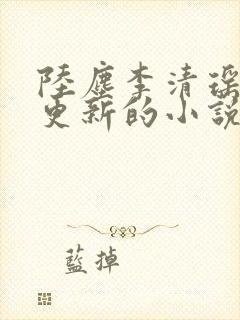 陸塵李清瑤
更新的小説
藍掉